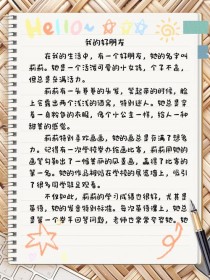 Hello~
我的好朋友
在我的生活中，有一个好朋友，她的名字叫
莉莉。她是一个活泼可爱的小女孩，个子不高，
但总是充满活力。
莉莉有一头乌黑的头发，笑起来的时候，脸
上会露出两个浅浅的酒窝，特别迷人。她总是穿
着一身粉色的衣服，像个小公主一样，给人一种
甜美的感觉。
莉莉特别喜欢画画，她的画总是充满了想象
力。记得有一次学校举办绘画比赛，莉莉用她的
画笔勾勒出了一幅美丽的风景画，赢得了比赛的
第一名。她的作品被贴在学校的展览墙上，吸引
了很多同学驻足观看。
不仅如此，莉莉的学习成绩也很好，尤其是
英语，她的发音特别标准。每次英语课上，她总
是第一个举手回答问题，老师也常常夸赞她。她